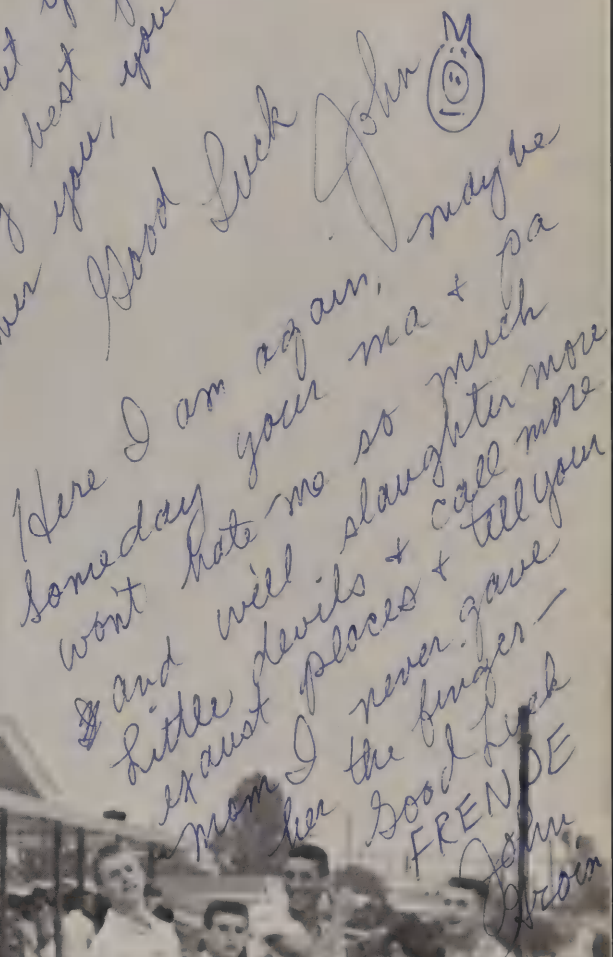 best
you, you
Good Luck
John
Here I am again, maybe
someday your ma + pa
won't hate me so much
and we'll slaughter more
little devils + call more
exaust places + tell your
mom I never gave
her the finger —
Good Luck
FRENDE
John